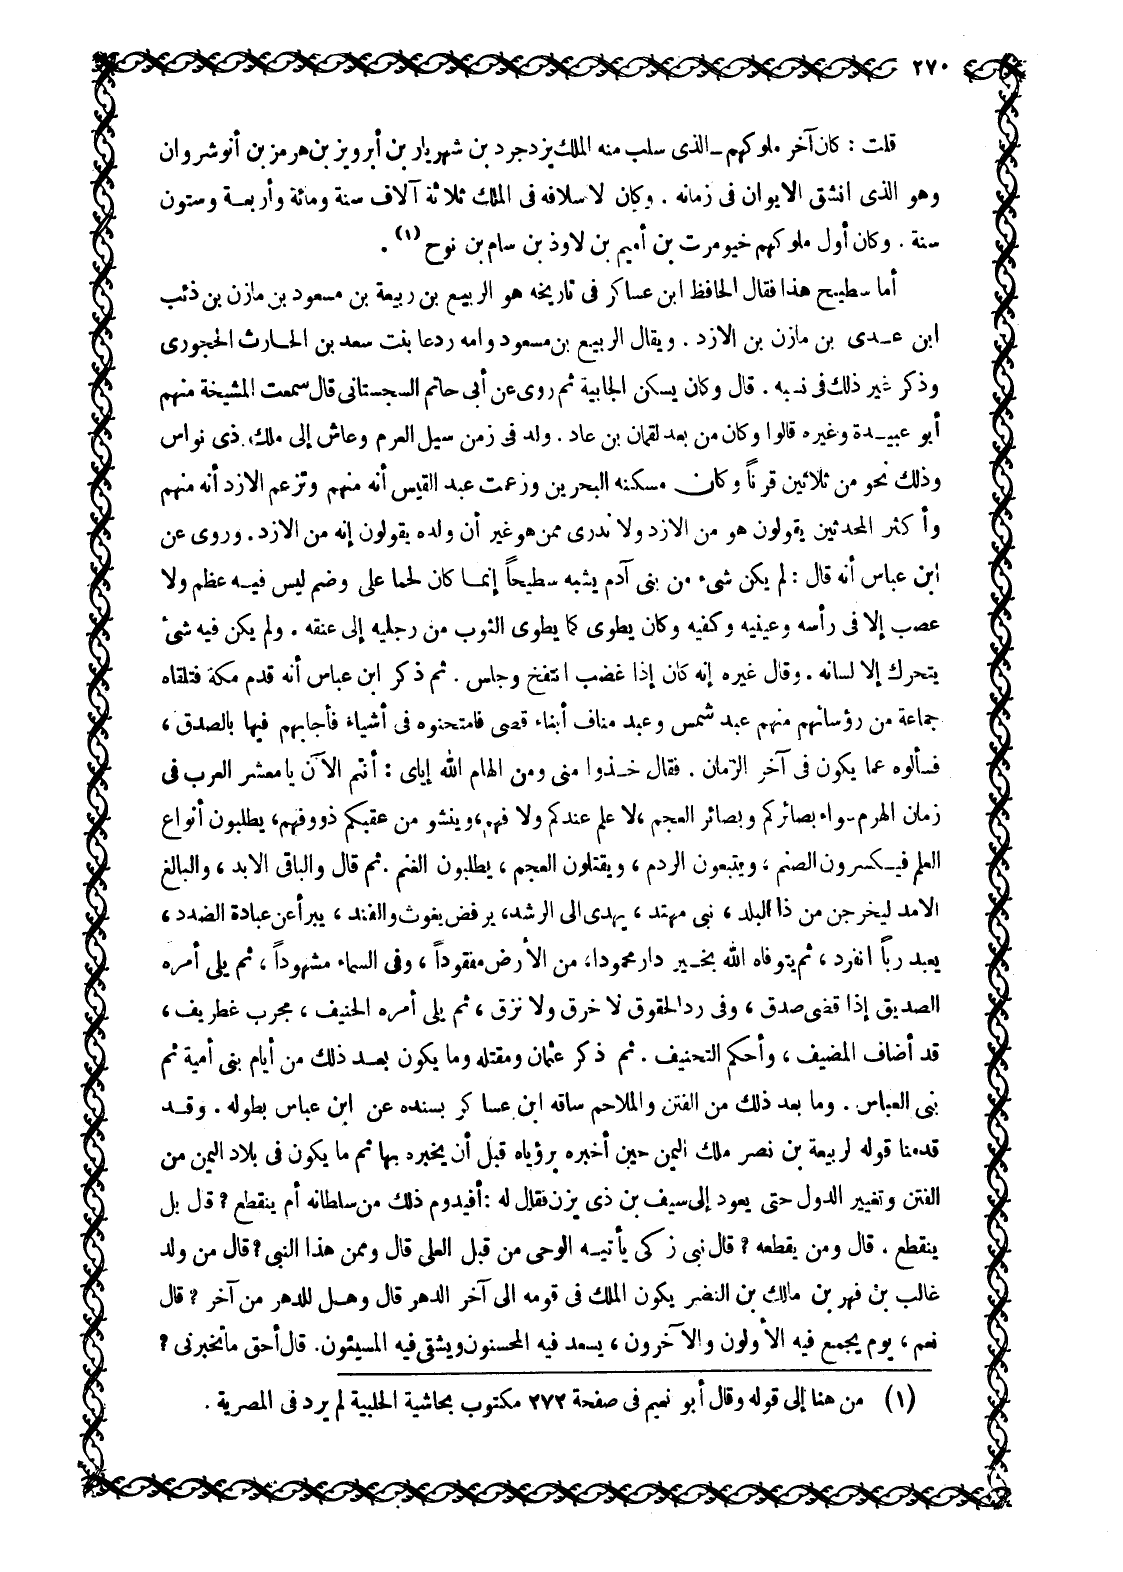 ٢٧٠
قلت : كان آخر ملوكهم ـ الذى سلب منه الملك يزدجرد بن شهريار بن أبرويز بن هرمز بن أنوشروان
وهو الذى انشق الايوان فى زمانه . وكان لاسلافه فى الملك ثلاثة آلاف سنة ومائة وأربعة وستون
سنة . وكان أول ملوكهم خيومرت بن أميم بن لاوذ بن سام بن نوح (١) .
أما سطيح هذا فقال الحافظ ابن عساكر فى تاريخه هو الربيع بن ربيعة بن مسعود بن مازن بن ذئب
ابن عدى بن مازن بن الازد . ويقال الربيع بن مسعود وامه ردعا بنت سعد بن الحارث الحجورى
وذكر غير ذلك فى نسبه . قال وكان يسكن الجابية ثم روى عن أبى حاتم السجستانى قال سمعت المشيخة منهم
أبو عبيدة وغيره قالوا وكان من بعد لقمان بن عاد . ولد فى زمن سيل العرم وعاش إلى ملك ذى نواس
وذلك نحو من ثلاثين قرناً وكان مسكنه البحرين وزعمت عبد القيس أنه منهم وتزعم الازد أنه منهم
وأكثر المحدثين يقولون هو من الازد ولا ندرى ممن هو غير أن ولده يقولون إنه من الازد . وروى عن
ابن عباس أنه قال : لم يكن شىء من بنى آدم يشبه سطيحاً إنما كان لحما على وضم ليس فيه عظم ولا
عصب إلا فى رأسه وعينيه وكفيه وكان يطوى كما يطوى الثوب من رجليه إلى عنقه . ولم يكن فيه شىء
يتحرك إلا لسانه . وقال غيره إنه كان إذا غضب انتفخ وجلس . ثم ذكر ابن عباس أنه قدم مكة فتلقاه
جماعة من رؤسائهم منهم عبد شمس وعبد مناف أبناء قصى فامتحنوه فى أشياء فأجابهم فيها بالصدق ،
فسألوه عما يكون فى آخر الزمان . فقال خذوا منى ومن الهام الله إياى : أنتم الآن يا معشر العرب فى
زمان الهرم سواء بصائركم وبصائر العجم ، لا علم عندكم ولا فهم ، وينشو من عقبكم ذوو فهم ، يطلبون أنواع
العلم فيكسرون الصنم ، ويتبعون الردم ، ويقتلون العجم ، يطلبون الغنم . ثم قال والباقى الابد ، والبالغ
الامد ليخرجن من ذا البلد ، نبى مهتد ، يهدى الى الرشد ، يرفض يغوث والفند ، يبرأ عن عبادة الضدد ،
يعبد رباً انفرد ، ثم يتوفاه الله بخير دار محمودا ، من الأرض مفقوداً ، وفى السماء مشهوداً ، ثم يلى أمره
الصديق إذا قضى صدق ، وفى رد الحقوق لا خرق ولا نزق ، ثم يلى أمره الحنيف ، مجرب غطريف ،
قد أضاف المضيف ، وأحكم التحنيف . ثم ذكر عثمان ومقتله وما يكون بعد ذلك من أيام بنى أمية ثم
بنى العباس . وما بعد ذلك من الفتن والملاحم ساقه ابن عساكر بسنده عن ابن عباس بطوله . وقد
قدمنا قوله لربيعة بن نصر ملك اليمن حين أخبره برؤياه قبل أن يخبره بها ثم ما يكون فى بلاد اليمن من
الفتن وتغيير الدول حتى يعود إلى سيف بن ذى يزن فقال له : أفيدوم ذلك من سلطانه أم ينقطع ? قال بل
ينقطع . قال ومن يقطعه ? قال نبى زكى يأتيه الوحى من قبل العلى قال وممن هذا النبى ? قال من ولد
غالب بن فهر بن مالك بن النضر يكون الملك فى قومه الى آخر الدهر قال وهل للدهر من آخر ? قال
نعم ، يوم يجمع فيه الأولون والآخرون ، يسعد فيه المحسنون ويشقى فيه المسيئون . قال أحق ما تخبرنى ?
(١) من هنا إلى قوله وقال أبو نعيم فى صفحة ٢٧٢ مكتوب بحاشية الحلبية لم يرد فى المصرية .